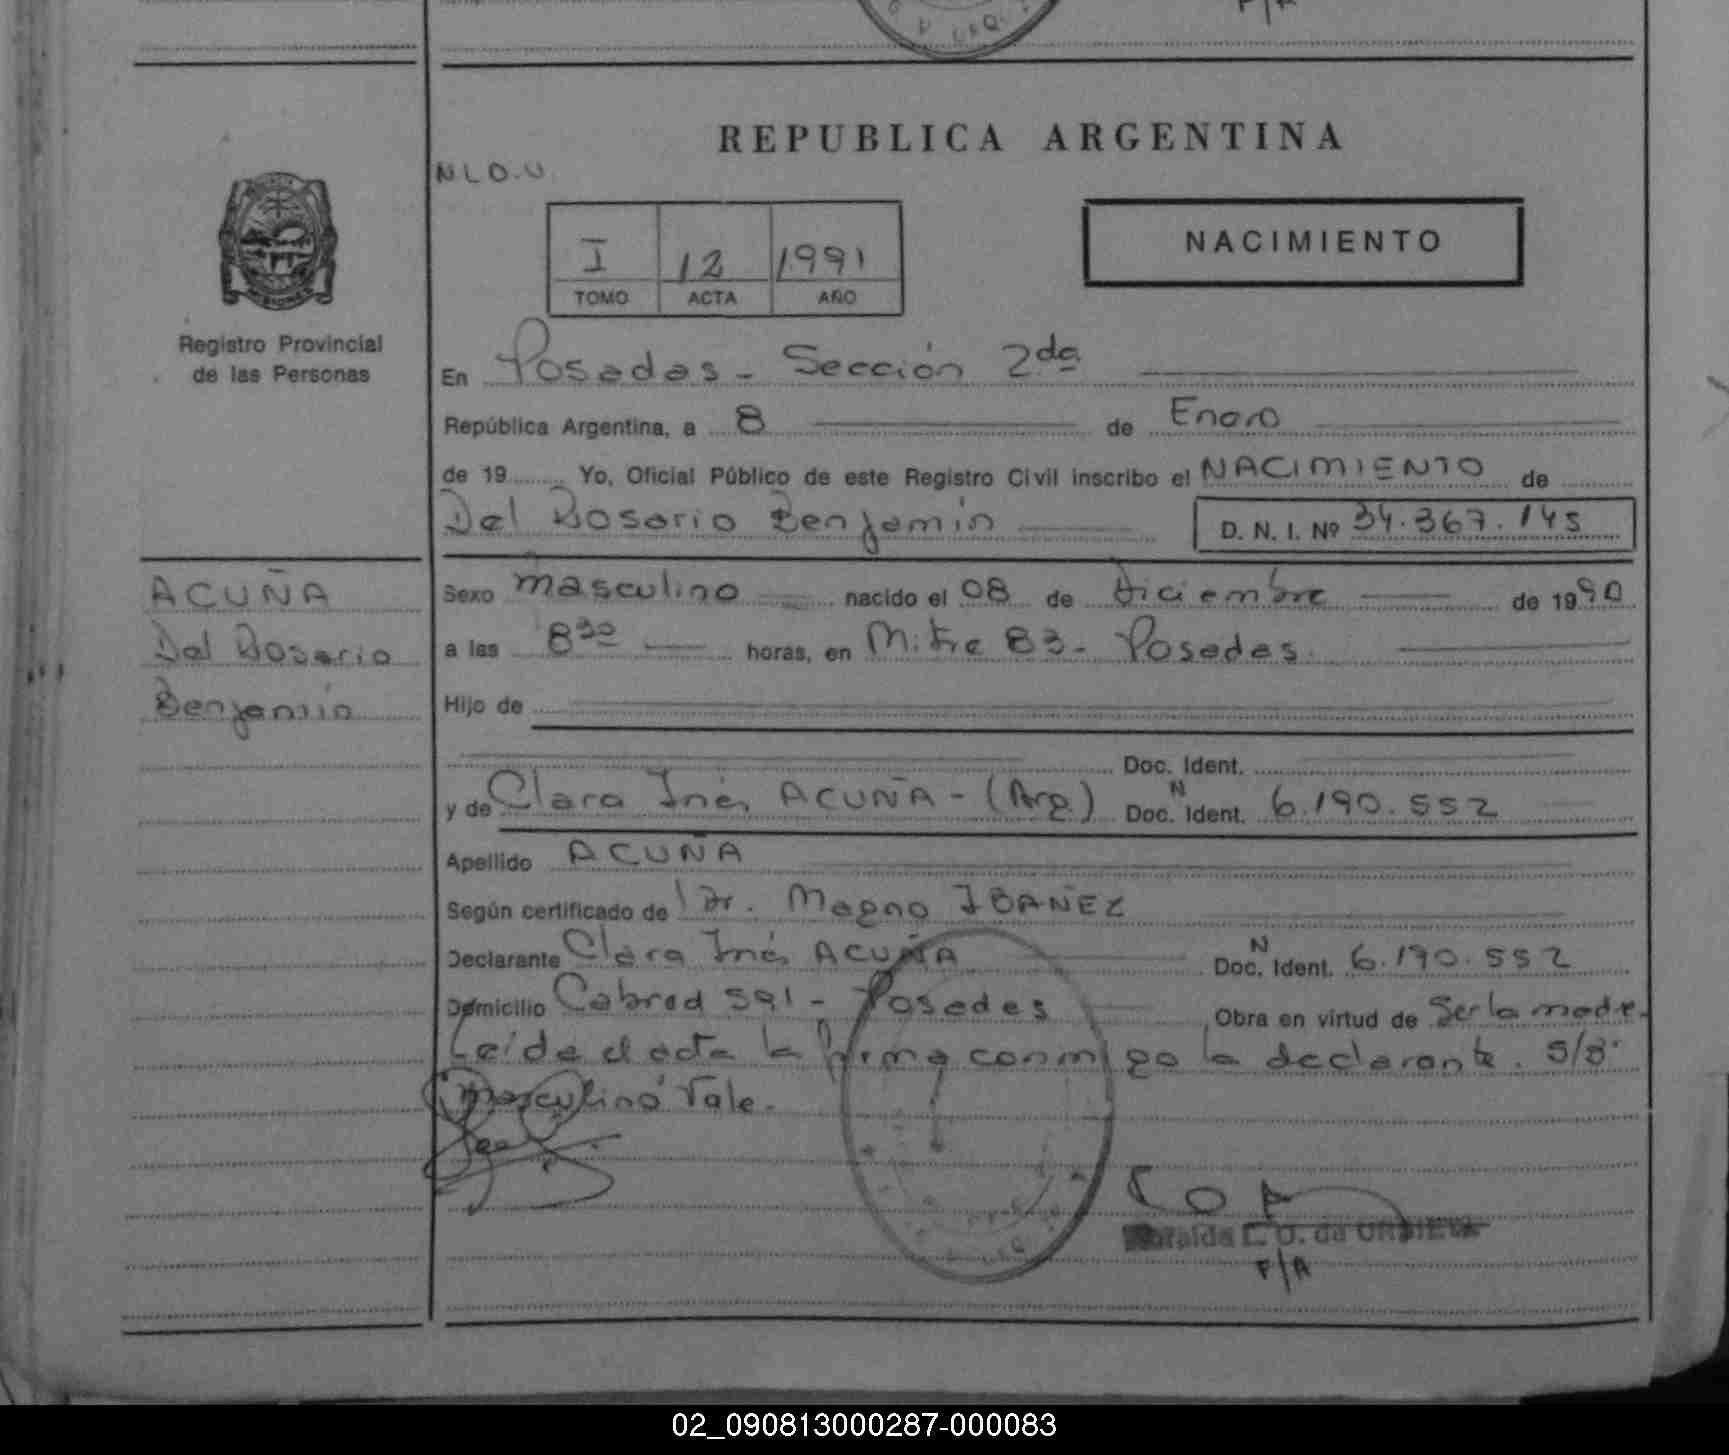 REPUBLICA ARGENTINA
N L O.U
I 12 1991
TOMO ACTA AÑO
NACIMIENTO
Registro Provincial
de las Personas
En Posadas - Sección 2da
República Argentina, a 8 de Enero
de 19 Yo, Oficial Público de este Registro Civil inscribo el NACIMIENTO de
Del Rosario Benjamín D. N. I. Nº 34.367.145
ACUÑA
Del Rosario
Benjamín
Sexo masculino nacido el 08 de Diciembre de 1990
a las 8 30 horas, en Mitre 83 - Posadas.
Hijo de
Doc. Ident.
y de Clara Inés ACUÑA - (Arg.) Doc. N Ident. 6.190.552
Apellido ACUÑA
Según certificado de Dr. Magno IBAÑEZ
Declarante Clara Inés ACUÑA Doc. N Ident. 6.190.552
Domicilio Cabred 591 - Posadas Obra en virtud de Ser la madre.
Leída el acta la firma conmigo la declarante. S/B:
masculino Vale.
L. O. de URBIETA
P/A
02_090813000287-000083